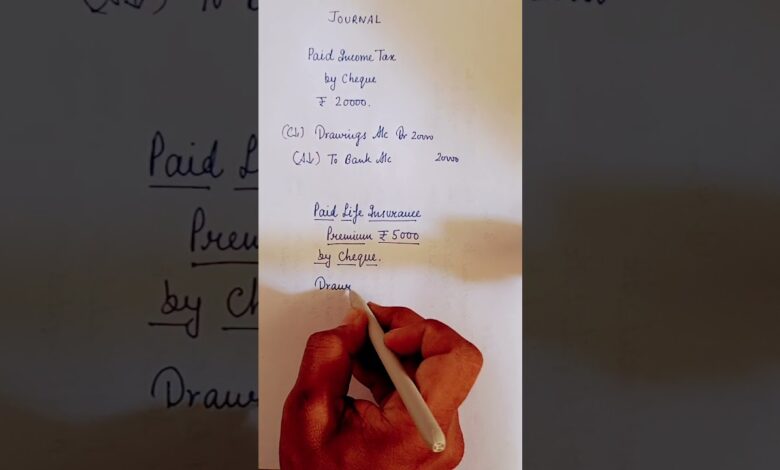 JOURNAL
Paid Income Tax
by Cheque
₹ 20000.
(C↓) Drawings A/c Dr 20000
(A↓) To Bank A/c 20000
Paid Life Insurance
Premium ₹ 5000
by Cheque.
Draw